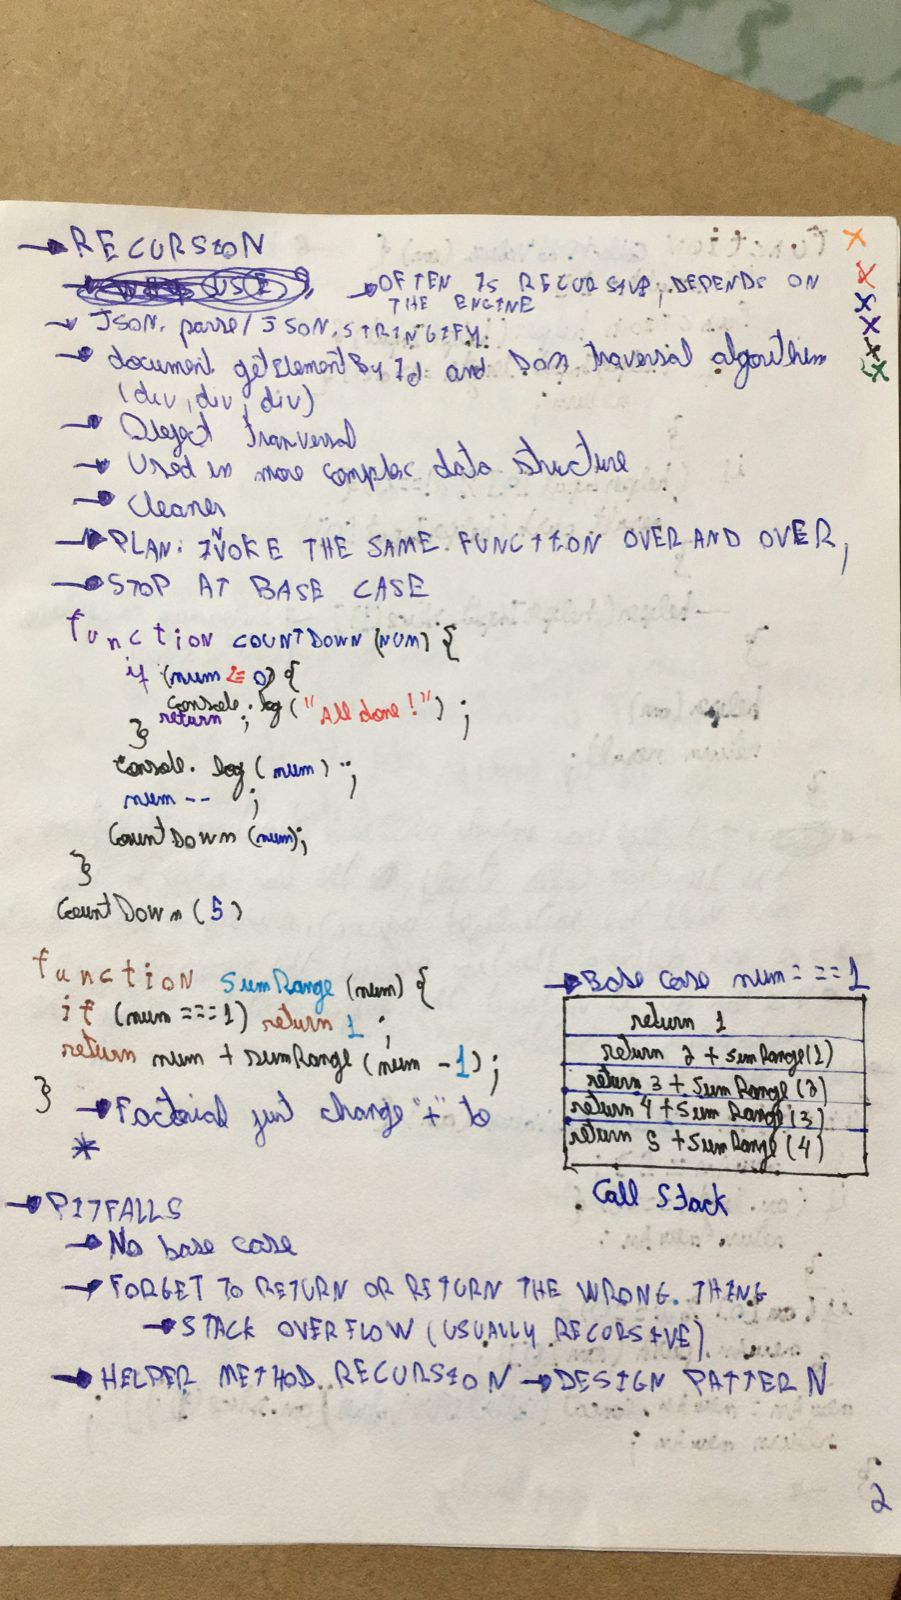 → RECURSION
USE → OFTEN IS RECURSIVE, DEPENDS ON
THE ENGINE
→ JSON. parse / JSON. STRINGIFY
→ document getElementById and DOM traversal algorithm
(div, div, div)
→ Object tranversal
→ Used in more complex data structure
→ Cleaner
→ PLAN: IVOKE THE SAME FUNCTION OVER AND OVER,
→ STOP AT BASE CASE
function COUNTDOWN (NUM) {
if (num <= 0) {
console.log("All done!");
return ;
}
console.log(num) ;
num -- ;
CountDown (num);
}
CountDown (5)
function SumRange (num) {
if (num ===1) return 1 ;
return num + sumRange (num -1);
}
→ Factorial just change "+" to
*
→ Base case num===1
return 1
return 2 + sumRange(1)
return 3 + Sum Range (2)
return 4 + Sum Range (3)
return 5 + Sum Range (4)
Call Stack
→ PITFALLS
→ No base case
→ FORGET TO RETURN OR RETURN THE WRONG THING
→ STACK OVERFLOW (USUALLY RECURSIVE)
→ HELPER METHOD RECURSION → DESIGN PATTERN
2